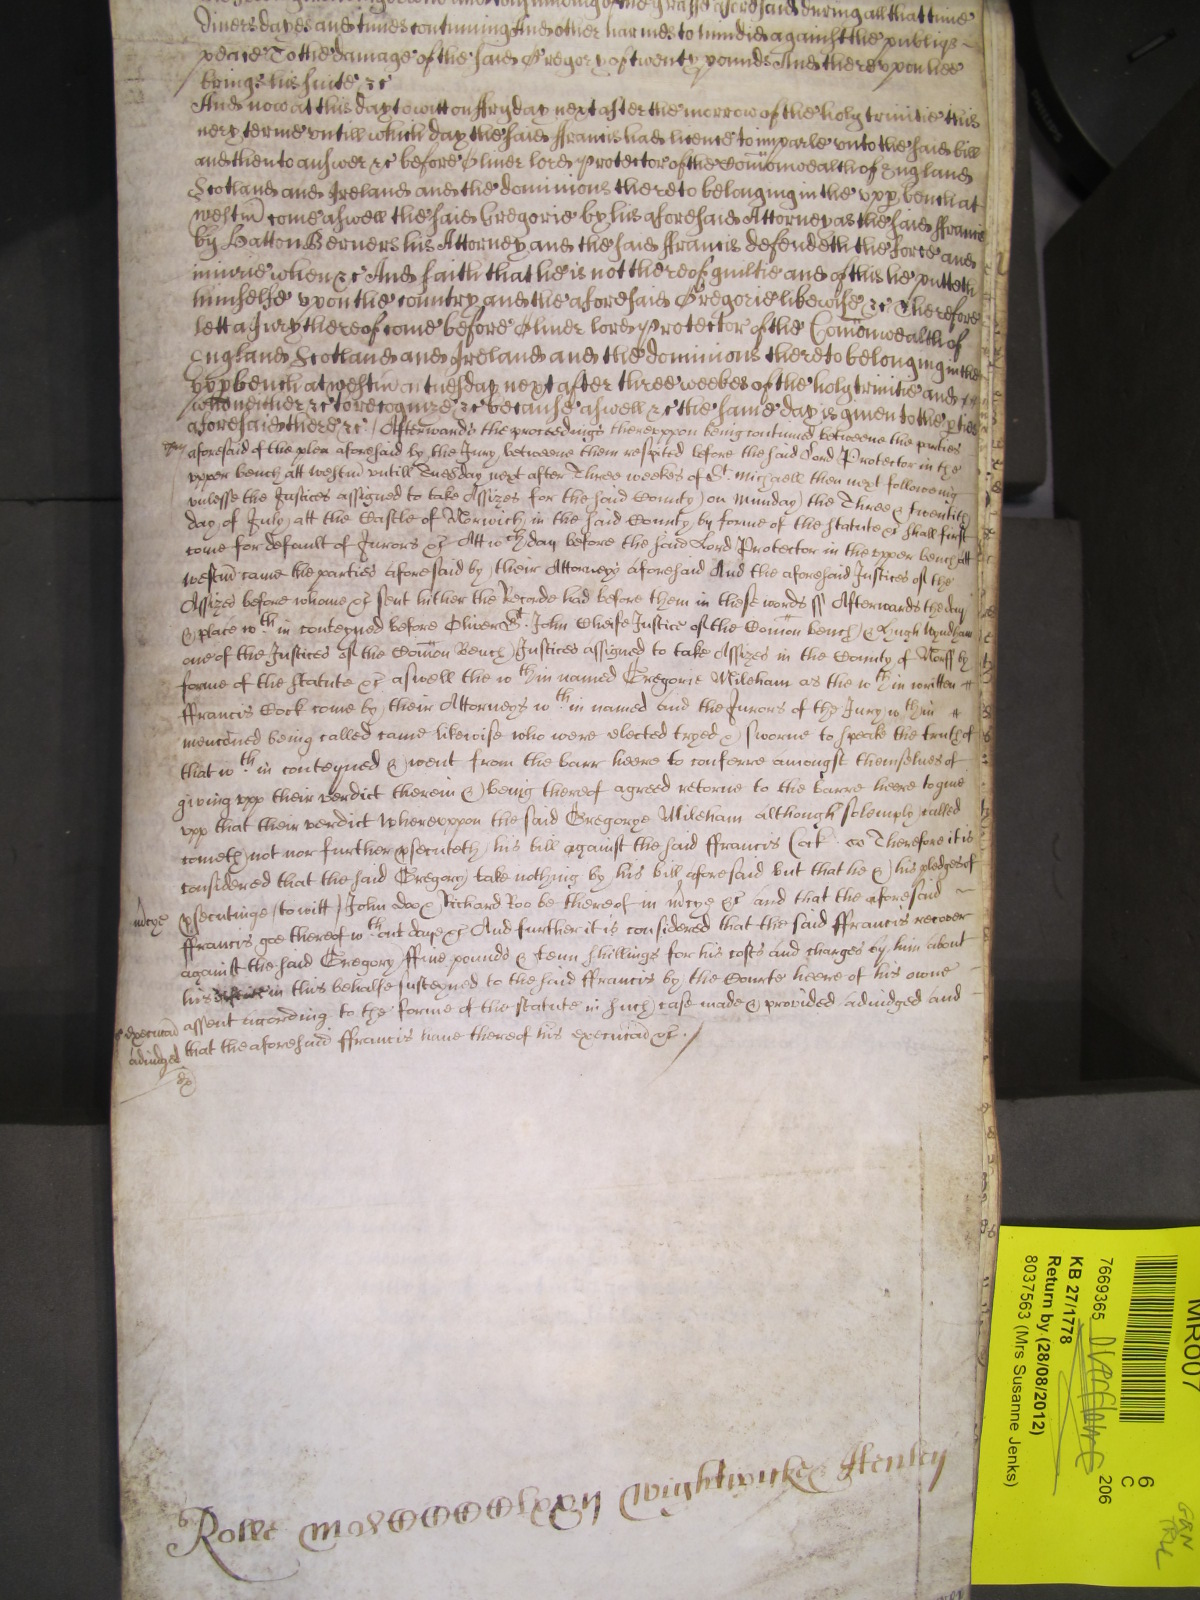 of the grasse aforesaid during all that time
divers dayes and times continuing And other harmes to him did against the publiqe
peace To the damage of the said Gregory of twenty pounds And thereupon hee
brings his suite &c
And now at this day to witt on ffryday next after the morrow of the holy trinitie this
very terme untill which day the said ffrancis had licence to imparle unto the said bill
and then to answer &c before Oliver lord Protector of the Comonwealth of England
Scotland and Ireland and the dominions thereto belonging in the upp bench at
westm come aswell the said Gregorie by his aforesaid Attorney as the said ffrancis
by Hatton Berners his Attorney and the said ffrancis defendeth the force and
iniurie when &c And saith that he is not thereof guiltie and of this he putteth
himselfe upon the country and the aforesaid Gregorie likewise &c Therefore
lett a Jury thereof come before Oliver lord Protector of the Comonwealth of
England Scotland and Ireland and the dominions thereto belonging in the
upp bench at westm on tuesday next after three weekes of the holy trinitie and
who neither &c to recognize &c because aswell &c the same day is given to the pties
aforesaid there &c / Afterwards the proceedings thereuppon being continued betweene the parties
aforesaid of the plea aforesaid by the Jury betweene them respited before the said Lord Protector in the
upper bench att westm untill Tuesday next after Three weekes of St. Michaell then next following
unlesse the Justices assigned to take Assizes for the said County on Munday the Three & twentith
day of July att the Castle of Norwich in the said County by forme of the statute &c shall first
come for default of Jurors &c Att wch day before the said Lord Protector in the upper bench att
westm came the parties aforesaid by their Attorneys aforesaid And the aforesaid Justices of the
Assizes before whome &c sent hither the Recorde had before them in these words ss Afterwards the day
& place wth in conteyned before Oliver St. John Cheife Justice of the Comon bench & Hugh Wyndham
one of the Justices of the Comon Bench Justices assigned to take Assizes in the County of Norff by
forme of the statute &c aswell the wth in named Gregorie Mileham as the wth in written
ffrancis Cock come by their Attorneys wth in named and the Jurors of the Jury wth in
mencioned being called came likewise who were elected tryed & sworne to speake the truth of
that wth in conteyned & went from the barr heere to conferre amongst themselves of
giving upp their verdict therein & being thereof agreed retorne to the barre heere to give
upp that their verdict Whereuppon the said Gregorye Mileham although solemply called
cometh not nor further psecuteth his bill against the said ffrancis Cock Therefore it is
considered that the said Gregory take nothing by his bill aforesaid but that he & his pledges of
mcye
psecutinge to witt John Doo & Richard Roo be thereof in mcye &c and that the aforesaid
ffrancis goe thereof wth out daye &c And further it is considered that the said ffrancis recover
against the said Gregory ffive pounds & tenn shillings for his costs and charges by him about
his in this behalfe susteyned to the said ffrancis by the Courte heere of his owne
assent according to the forme of the statute in such case made & provided adiudged and
execucon
that the aforesaid ffrancis have thereof his execucon &c. /
adiudged
Rolle Wightwicke Henley
MR007
6
C
206
7669365
Overflow
KB 27/1778
Return by (28/08/2012)
8037563 (Mrs Susanne Jenks)